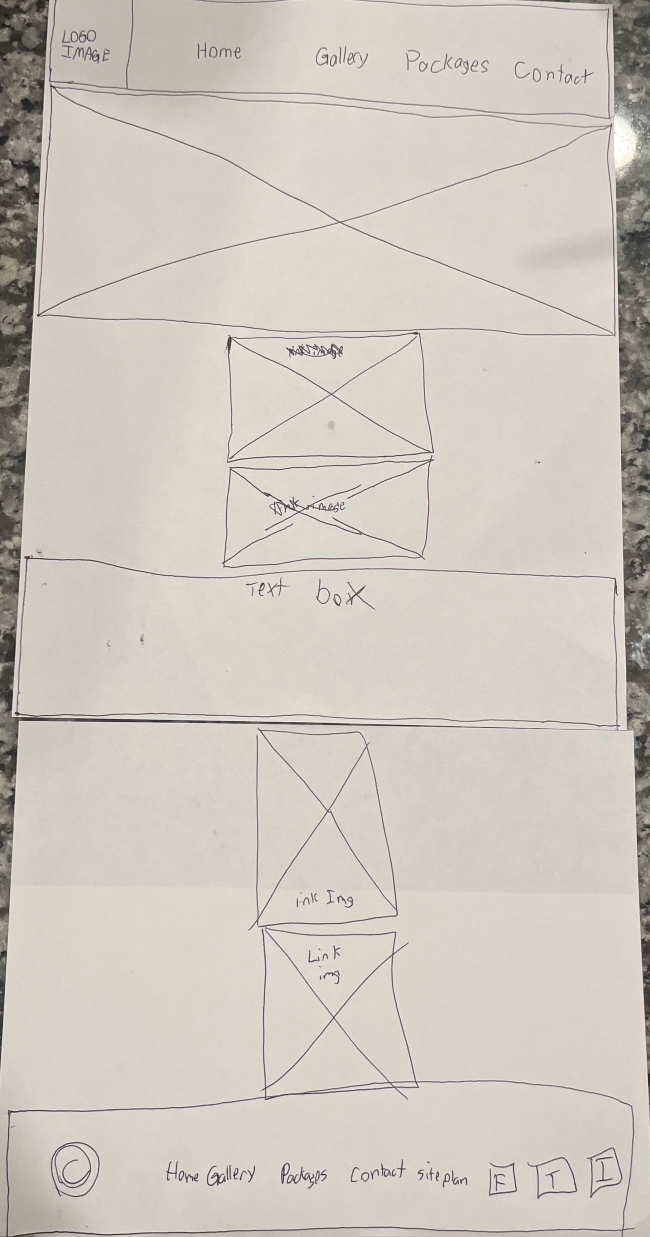 LOGO
IMAGE
Home Gallery Packages Contact
Link image
Text box
ink Img
Link
img
C
Home Gallery Packages Contact siteplan F T I